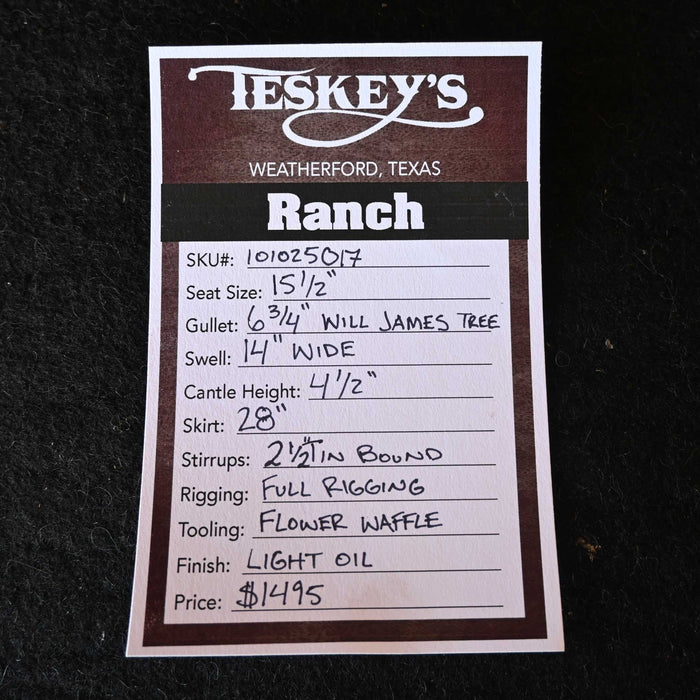 TESKEY'S
WEATHERFORD, TEXAS
Ranch
SKU#: 101025017
Seat Size: 15 1/2"
Gullet: 6 3/4" WILL JAMES TREE
Swell: 14" WIDE
Cantle Height: 4 1/2"
Skirt: 28"
Stirrups: 2 1/2" TIN BOUND
Rigging: FULL RIGGING
Tooling: FLOWER WAFFLE
Finish: LIGHT OIL
Price: $1495